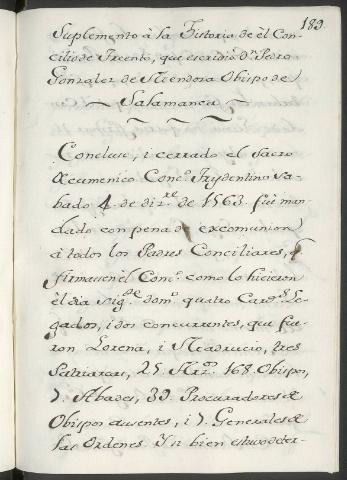 183.
Suplemento à la Historia de èl Con-
cilio de Trento, que escrivió Dn. Pedro
Gonzalez de Mendoza Obispo de
Salamanca
Concluso, i cerrado el Sacro
Œcumenico Conco. Trydentino Sa-
bado 4. de dizre. de 1563. fuè man-
dado con pena de excomunion
à todos los Padres Conciliares, q
firmassen èl Conco. como lo hicieron
èl dia sigte. domo. quatro Cards. Le-
gados, i dos concurrentes, que fue-
ron Lorena, i Madrucio, tres
Patriarcas, 25. Arzos. 168. Obispos,
7. Abades, 39. Procuradores de
Obispos ausentes, i 7. Generales de
las Ordenes. Y si bien estuvo deter-